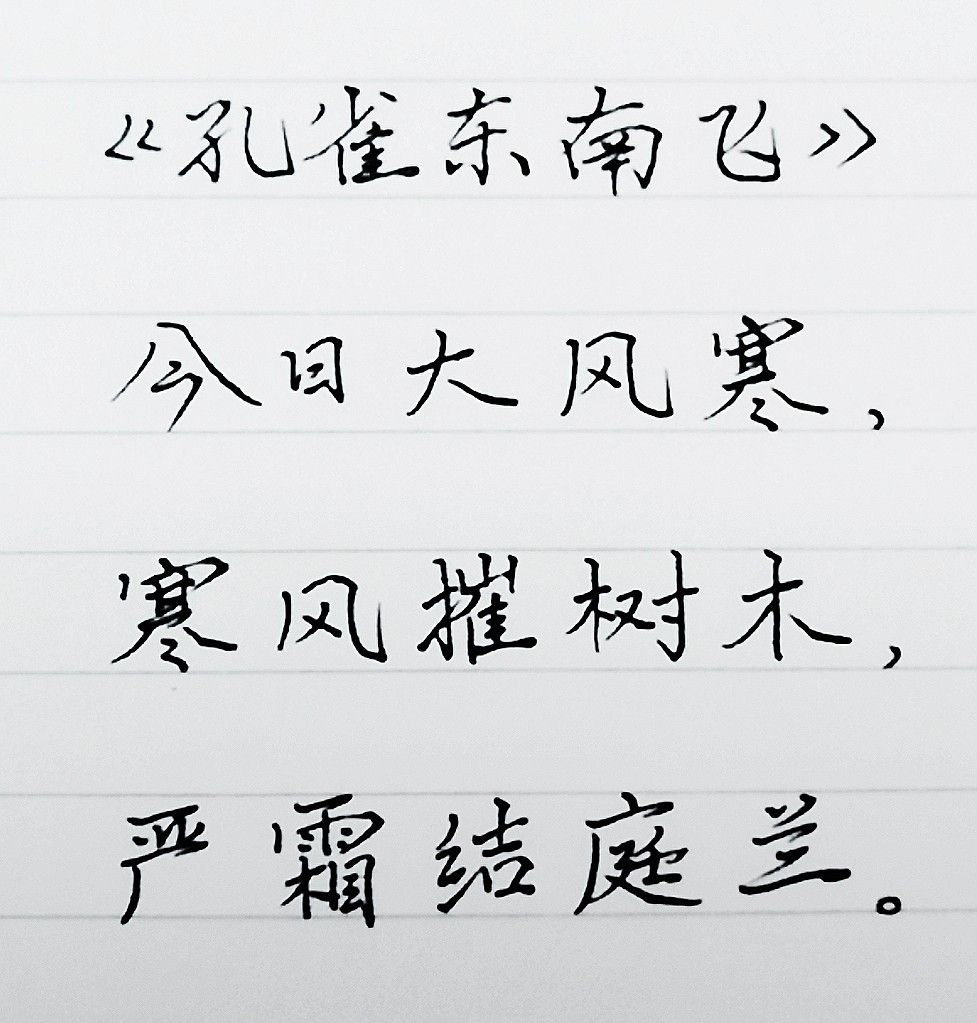 《孔雀东南飞》
今日大风寒，
寒风摧树木，
严霜结庭兰。